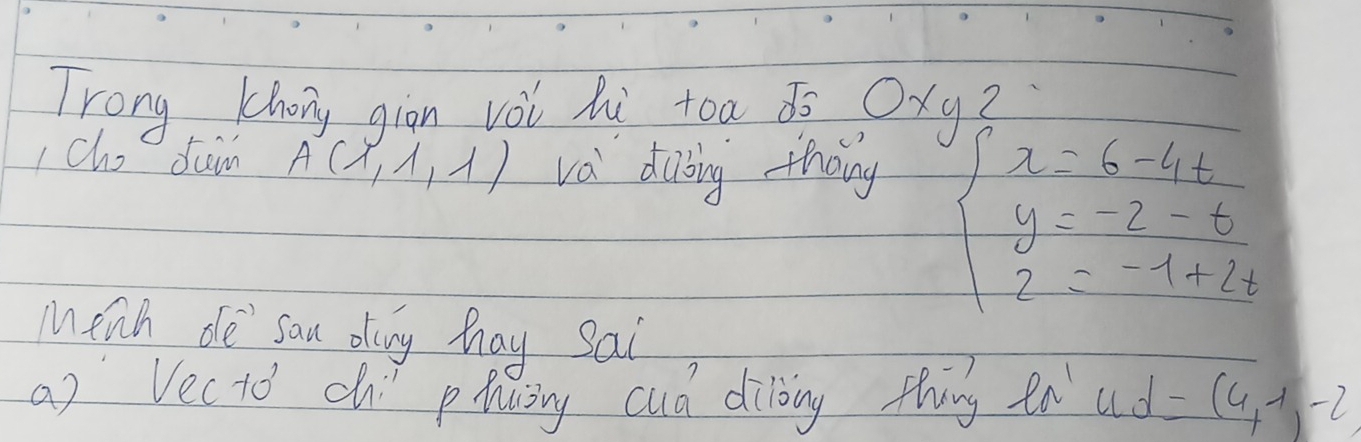 Trong không gian với hệ toạ độ Oxyz
, Cho điểm A(1,1,1) và đường thẳng { x = 6 - 4t
y = -2 - t
z = -1 + 2t
Mệnh đề sau đúng hay sai
a) Vectơ chỉ phương của đường thẳng là ud = (4,1,-2)